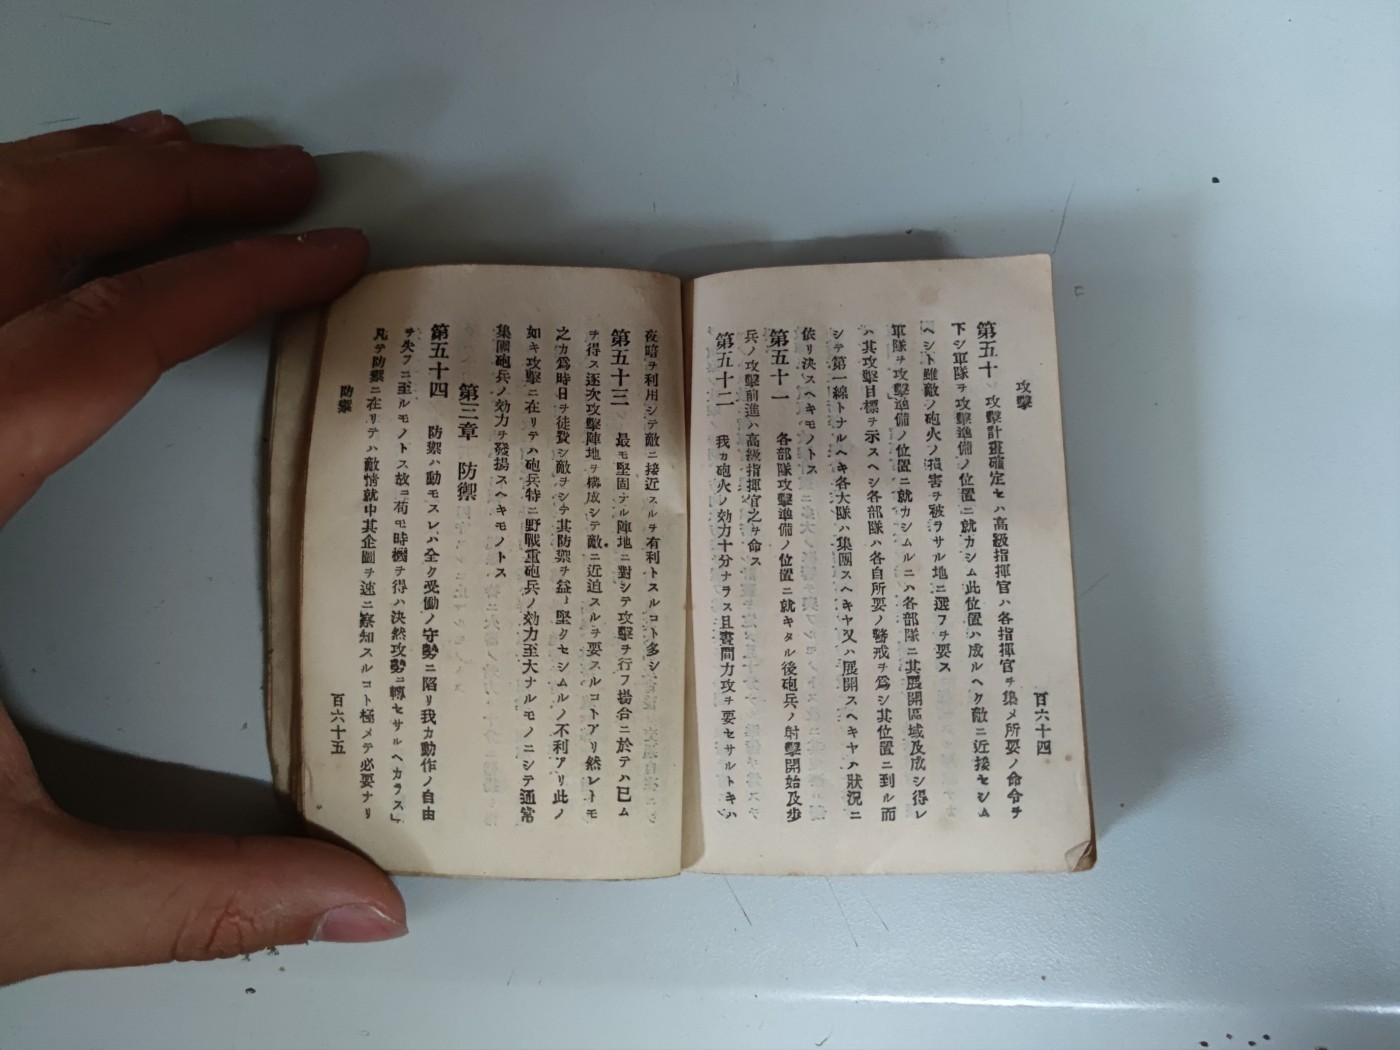 攻擊
百六十四
第五十 攻擊計畫確定セハ高級指揮官ハ各指揮官ヲ集メ所要ノ命令ヲ
下シ軍隊ヲ攻擊準備ノ位置ニ就カシム此位置ハ成ルヘク敵ニ近接セシム
ヘシト雖敵ノ砲火ノ損害ヲ被ラサル地ニ選フヲ要ス
軍隊ヲ攻擊準備ノ位置ニ就カシムルニハ各部隊ニ其展開區域及成シ得レ
ハ其攻擊目標ヲ示スヘシ各部隊ハ各自所要ノ警戒ヲ爲シ其位置ニ到ル而
シテ第一線トナルヘキ各大隊ハ集團スヘキヤ又ハ展開スヘキヤハ狀況ニ
依リ決スヘキモノトス
第五十一 各部隊攻擊準備ノ位置ニ就キタル後砲兵ノ射擊開始及步
兵ノ攻擊前進ハ高級指揮官之ヲ命ス
第五十二 我カ砲火ノ効力十分ナラス且晝間力攻ヲ要セサルトキハ
夜暗ヲ利用シテ敵ニ接近スルヲ有利トスルコト多シ
第五十三 最モ堅固ナル陣地ニ對シテ攻擊ヲ行フ塲合ニ於テハ已ム
ヲ得ス逐次攻擊陣地ヲ構成シテ敵ニ近迫スルヲ要スルコトアリ然レトモ
之カ爲時日ヲ徒費シ敵ヲシテ其防禦ヲ益〻堅クセシムルノ不利アリ此ノ
如キ攻擊ニ在リテハ砲兵特ニ野戰重砲兵ノ効力至大ナルモノニシテ通常
集團砲兵ノ効力ヲ發揚スヘキモノトス
第三章 防禦
第五十四 防禦ハ動モスレハ全ク受働ノ守勢ニ陷リ我カ動作ノ自由
ヲ失フニ至ルモノトス故ニ苟モ時機ヲ得ハ決然攻勢ニ轉セサルヘカラス」
凡テ防禦ニ在リテハ敵情就中其企圖ヲ速ニ察知スルコト極メテ必要ナリ
防禦
百六十五